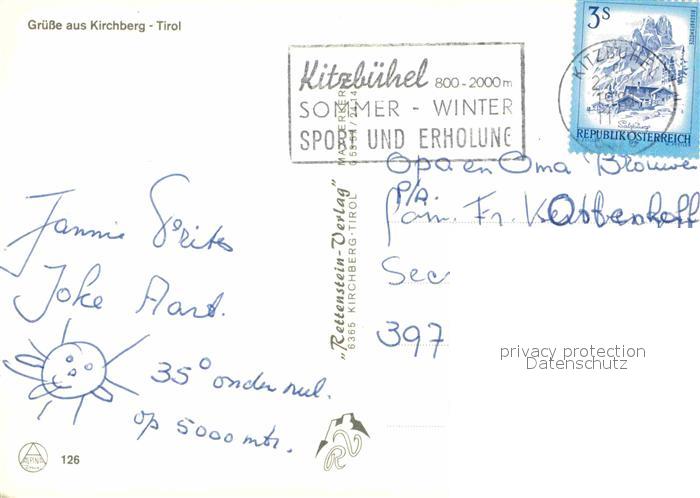 Grüße aus Kirchberg - Tirol
Kitzbühel 800-2000m
SOMMER - WINTER
SPORT UND ERHOLUNG
3S
KITZBÜHEL
REPUBLIK ÖSTERREICH
Opa en Oma Brouwer
p/a.
Fam. Fr.
Sec
397
privacy protection
Datenschutz
"Rettenstein-Verlag"
6365 KIRCHBERG-TIROL
Jannie Frits
Joke Aart.
35° onder nul.
op 5000 mtr.
RV
ALPINA
126